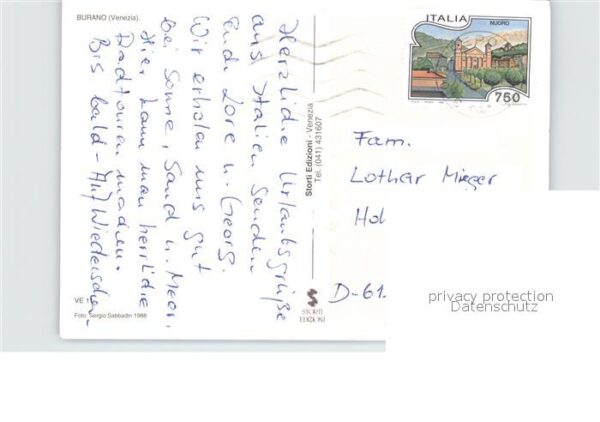 BURANO (Venezia)
Herzliche Urlaubsgrüße
aus Italien senden
Euch Lore u. Georg.
Wir erholen uns gut
bei Sonne, Sand u. Meer.
Hier kann man herrliche
Radtouren machen.
Bis bald - Auf Wiedersehen
VE 1
Foto: Sergio Sabbadin 1988
Storti Edizioni - Venezia
Tel. (041) 431607
STORTI
EDIZIONI
ITALIA
NUORO
750
Fam.
Lothar Mieger
Hol
D-61.
privacy protection
Datenschutz